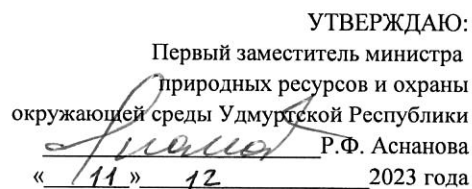 УТВЕРЖДАЮ:
Первый заместитель министра
природных ресурсов и охраны
окружающей среды Удмуртской Республики
Р.Ф. Аснанова
« 11 » 12 2023 года